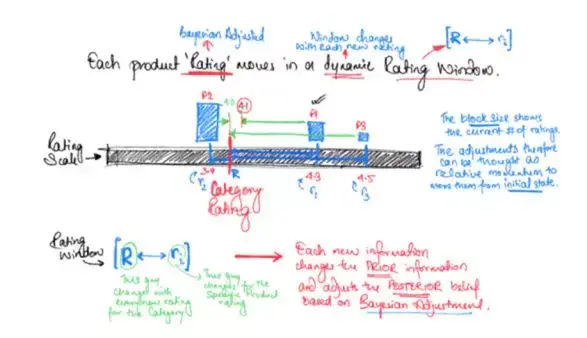 Bayesian Adjusted
Window changes
with each new rating
[R ↔ ri]
Each product 'Rating' moves in a dynamic Rating Window.
P2
4.0
4.1
P1
P3
The block size shows
the current # of ratings.
The adjustments therefore
can be thought as
relative momentum to
move them from initial state.
Rating
Scale
3.9
r2
R
4.3
r1
4.5
r3
Category
Rating
Rating
Window
[R ↔ ri]
This guy
changes with
everynew rating
for the Category
This guy
changes for the
Specific Product
rating
Each new information
changes the PRIOR information
and adjusts the POSTERIOR belief
based on Bayesian Adjustment.